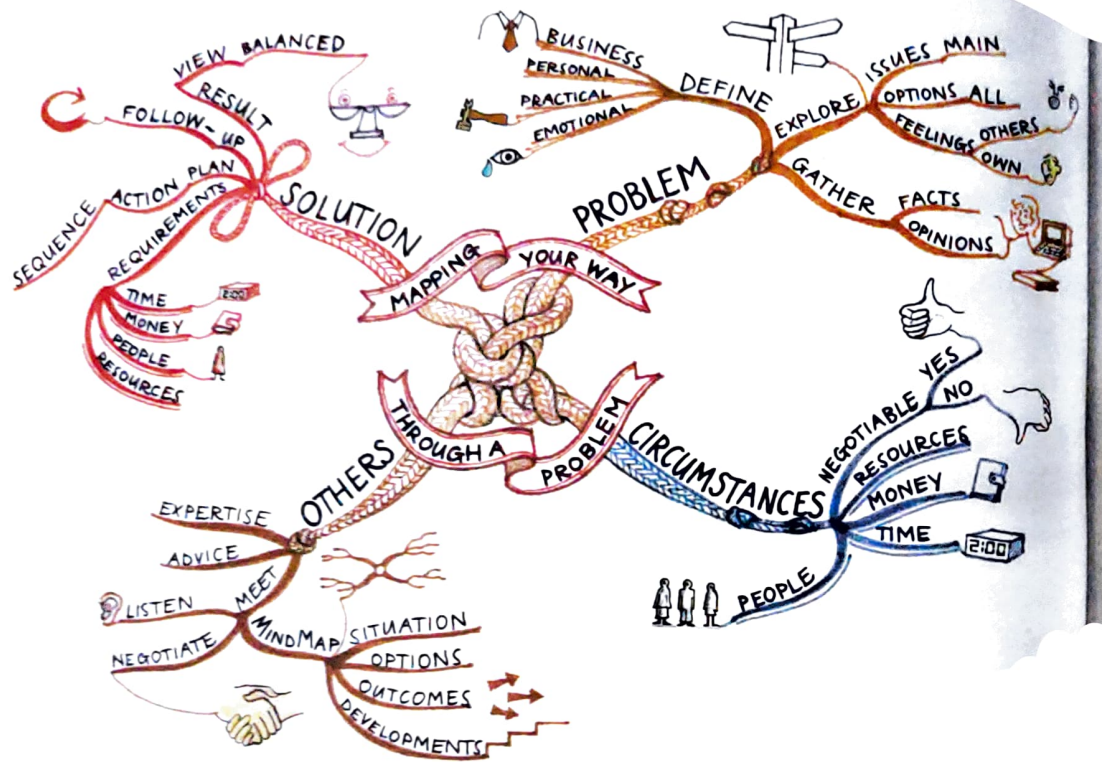 MAPPING
YOUR WAY
THROUGH A
PROBLEM
PROBLEM
DEFINE
BUSINESS
PERSONAL
PRACTICAL
EMOTIONAL
EXPLORE
ISSUES MAIN
OPTIONS ALL
FEELINGS
OTHERS
OWN
GATHER
FACTS
OPINIONS
CIRCUMSTANCES
NEGOTIABLE
YES
NO
RESOURCES
MONEY
TIME
2:00
PEOPLE
OTHERS
EXPERTISE
ADVICE
MEET
LISTEN
NEGOTIATE
MINDMAP
SITUATION
OPTIONS
OUTCOMES
DEVELOPMENTS
SOLUTION
RESULT
VIEW BALANCED
FOLLOW-UP
ACTION PLAN
SEQUENCE
REQUIREMENTS
TIME
2:00
MONEY
PEOPLE
RESOURCES